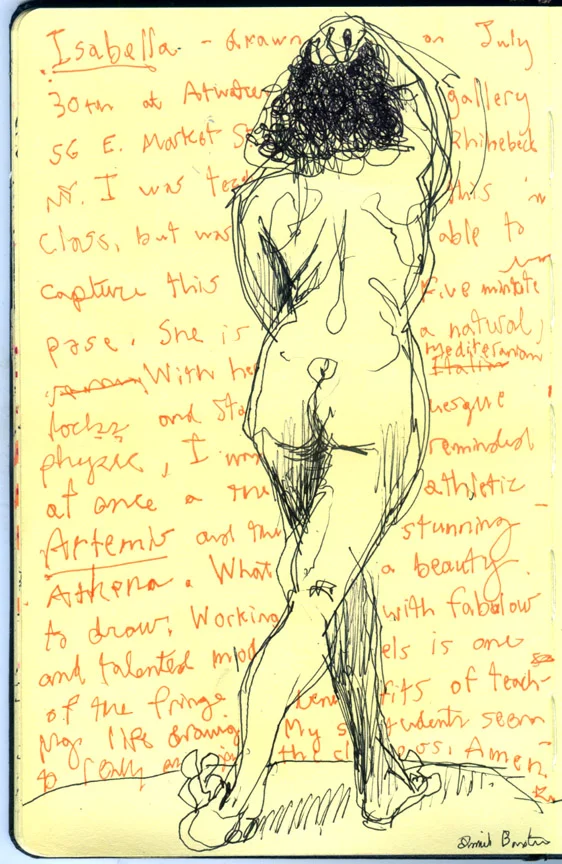 Isabella - drawn on July
30th at Atwater gallery
56 E. Market St Rhinebeck
NY. I was teac this in
class, but was able to
capture this five minute
pose. She is a natural,
With he Mediteranian Italian
locks and sta uesque
physic, I was reminded
at once a the athletic
Artemis and the stunning
Athena. What a beauty
to draw. Working with fabulow
and talented models is one
of the fringe benefits of teach-
ing life drawing My students seem
to really the class. Amen.